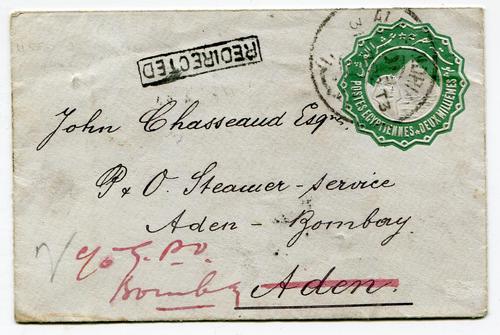 REDIRECTED
POSTES EGYPTIENNES * DEUX MILLIEMES
John Chasseaud Esqre
P & O. Steamer-service
Aden - Bombay.
c/o G. P.O.
Bombay Aden.